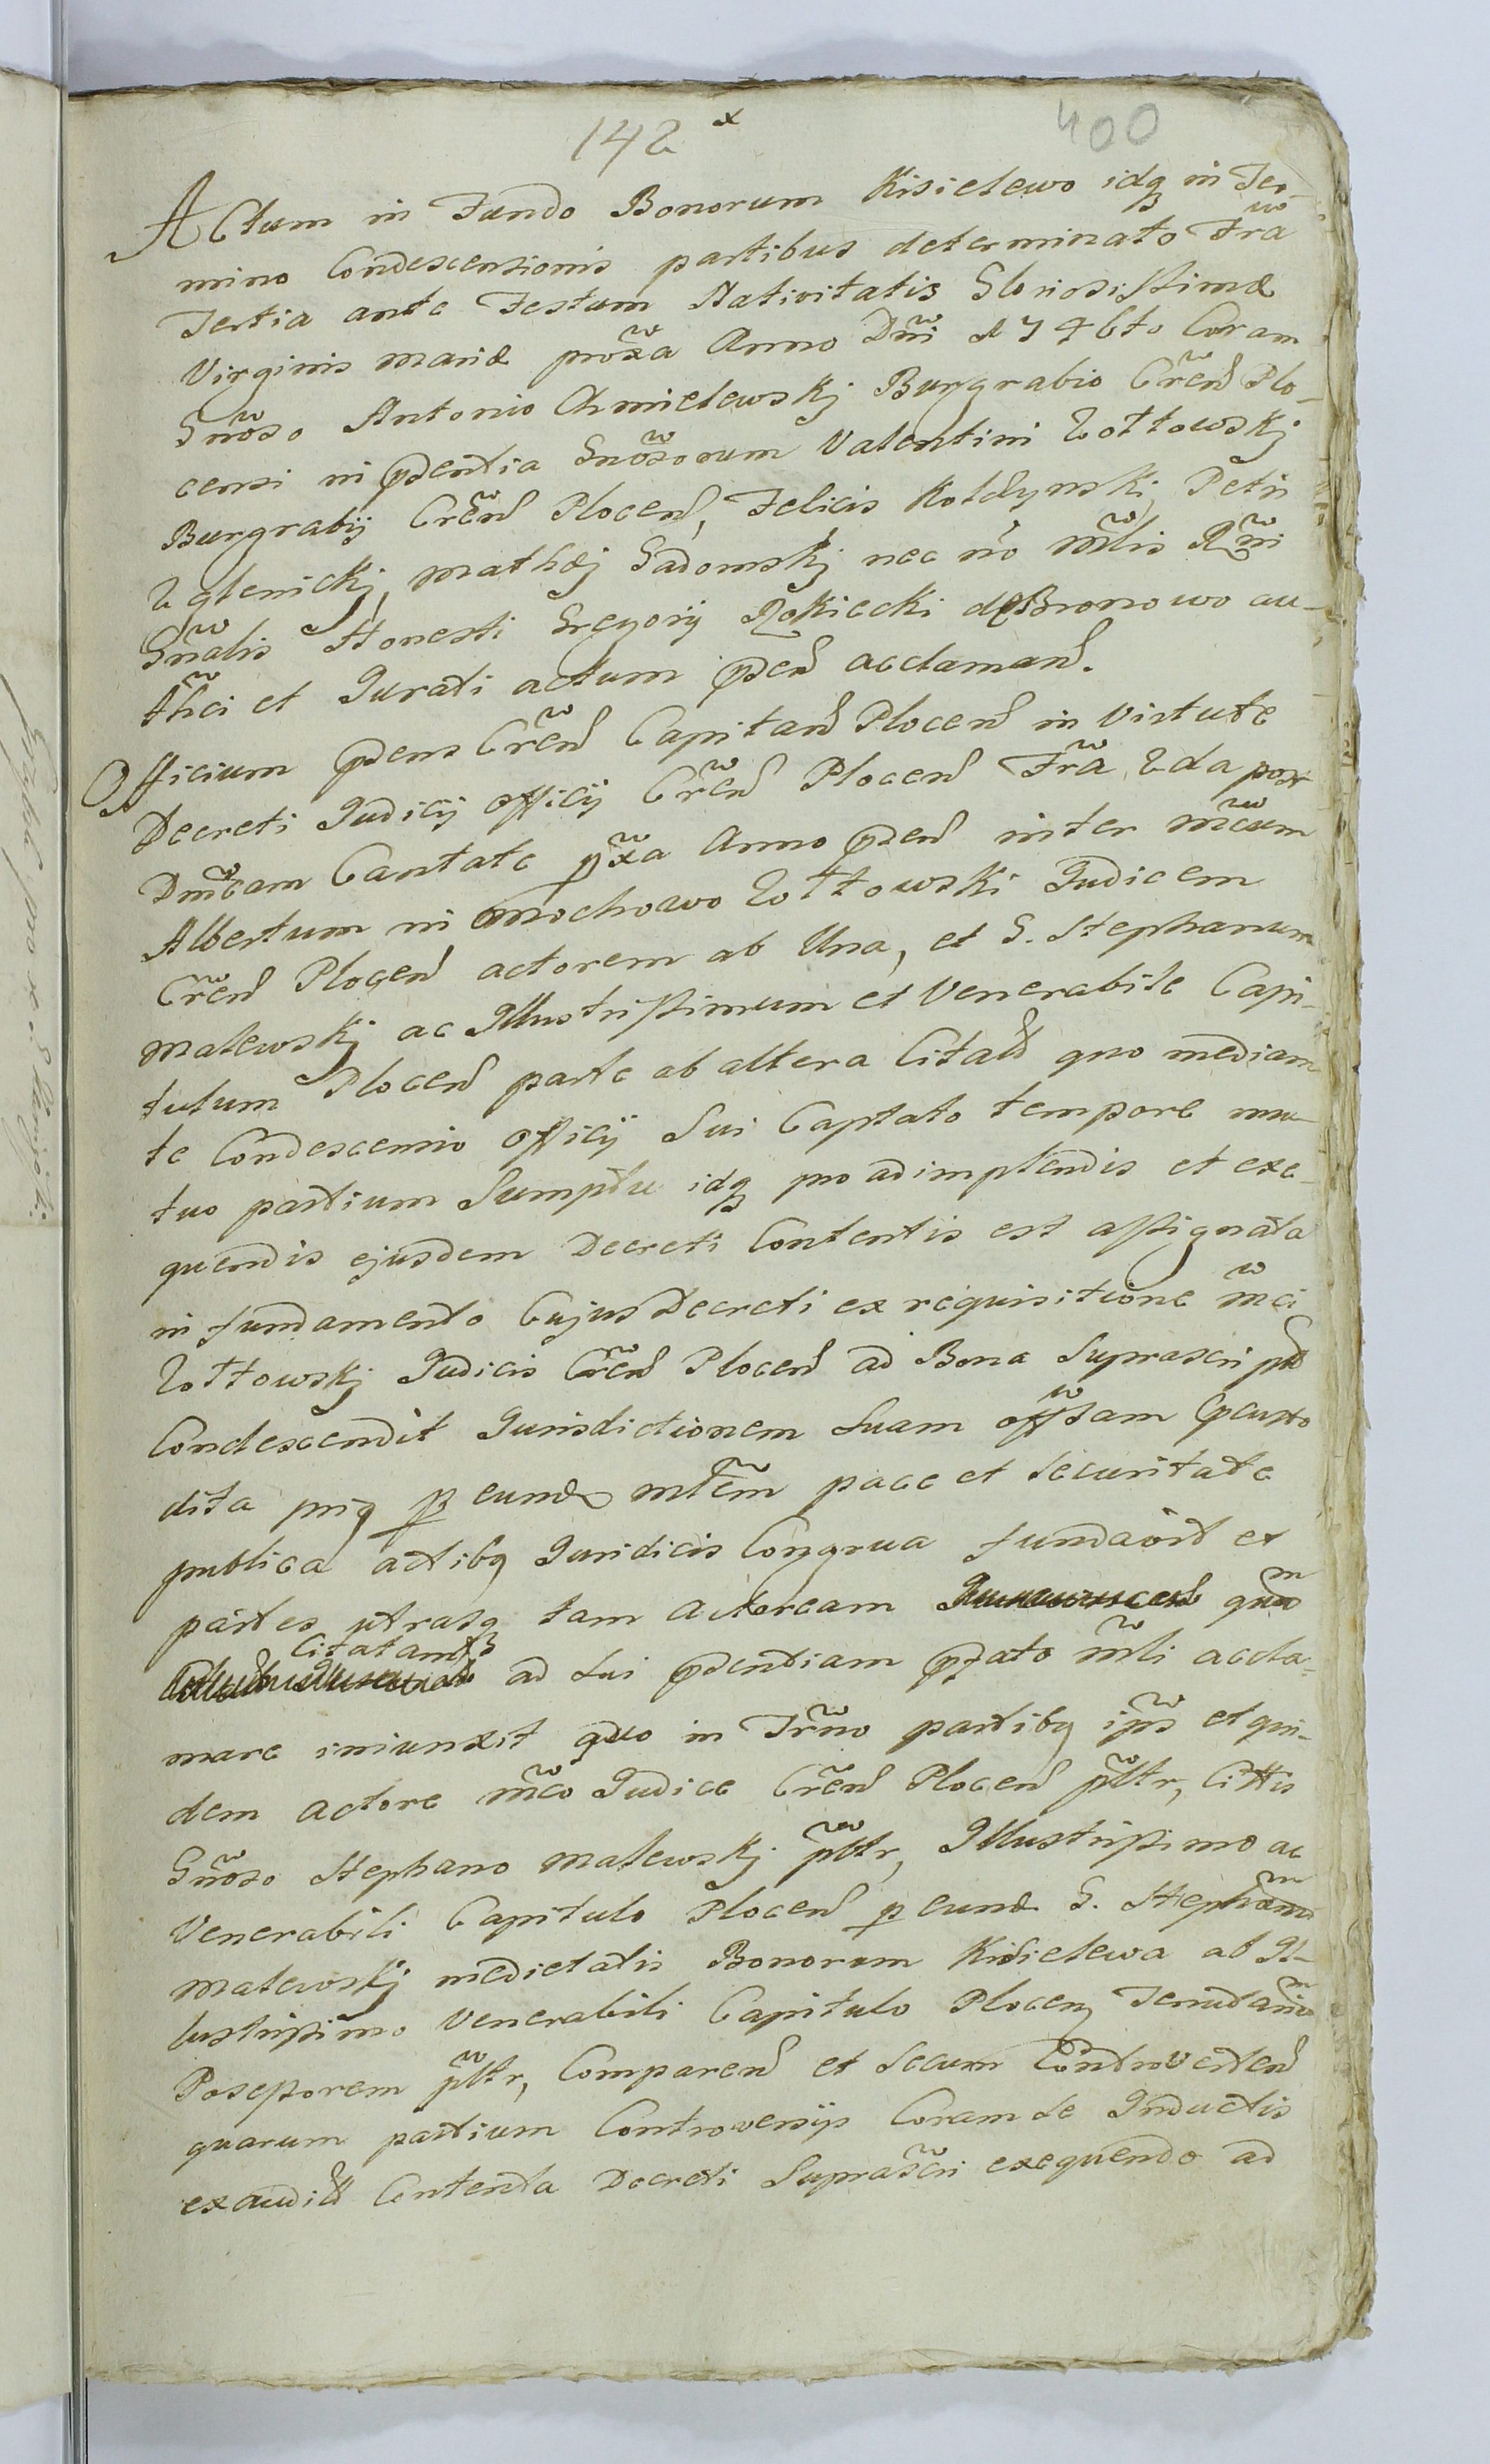 142 x
400
Actum in Fundo Bonorum Kisielewo idq in Ter
mino Condescensionis partibus determinato Fra
Tertia ante Festum Nativitatis Gloriosissimæ
Virginis Mariæ proxa Anno Dni 1746to Coram
Gnoso Antonio Chmielewskj Burgrabio Cren Plo-
censi in pńtia Gnosorum Valentini Zołtowskj
Burgrabij Cren Plocen, Felicis Koldÿnski, Petri
Zglenickj, Mathæj Sadomskj nec nō Mlis Rgni
Gnalis Honesti Gregorij Rokiccki de Bronowo au-
thci et Jurati actum pńen acclaman.
Officium pńens Cren Capitan Plocen in Virtute
Decreti Judicij officij Cren Plocen Fra 2da post
Dnicam Cantate pxa Anno pńen inter Mcum
Albertum in Mochowo Zołtowski Judicem
Cren Plocen actorem ab Una, et G. Stephanum
Malewskj ac Illustrissimum et Venerabile Capi-
tulum Plocen parte ab altera Citatos quo median
te Condescensio officij Sui Captato tempore mu-
tuo partium Sumptu idq pro adimplendis et exe-
quendis ejusdem Decreti Contentis est assignata
in fundamento Cujus Decreti ex requisitione Mci
Zołtowskj Judicis Cren Plocen ad Bona Suprascripta
Condescendit Jurisdictionem Suam offosam
dita priq p eund Mlem pace et securitate
publica actibq Juridicis Congrua fundavit et
partes utrasq tam Actoream qm
Citatam ad Sui pńentiam Mli accla-
mare iniunxit quo in Trno partibq ipis et qui-
dem actore Mco Judice Cren Plocen pltr, Cittis
Gnoso Stephano Malewskj pltr, Illustrissimo ac
Venerabili Capitulo Plocen p eund G. Stephanū
Malewskj medietatis Bonorum Kisielewa ab Il-
lustrissimo Venerabili Capitulo Plocen Tenutariū
Possessorem pltr, Comparen et secum Controverten
quarum partium Controversijs Coram se Inductis
exauditis Contenta Decreti Suprascri exequendo ad